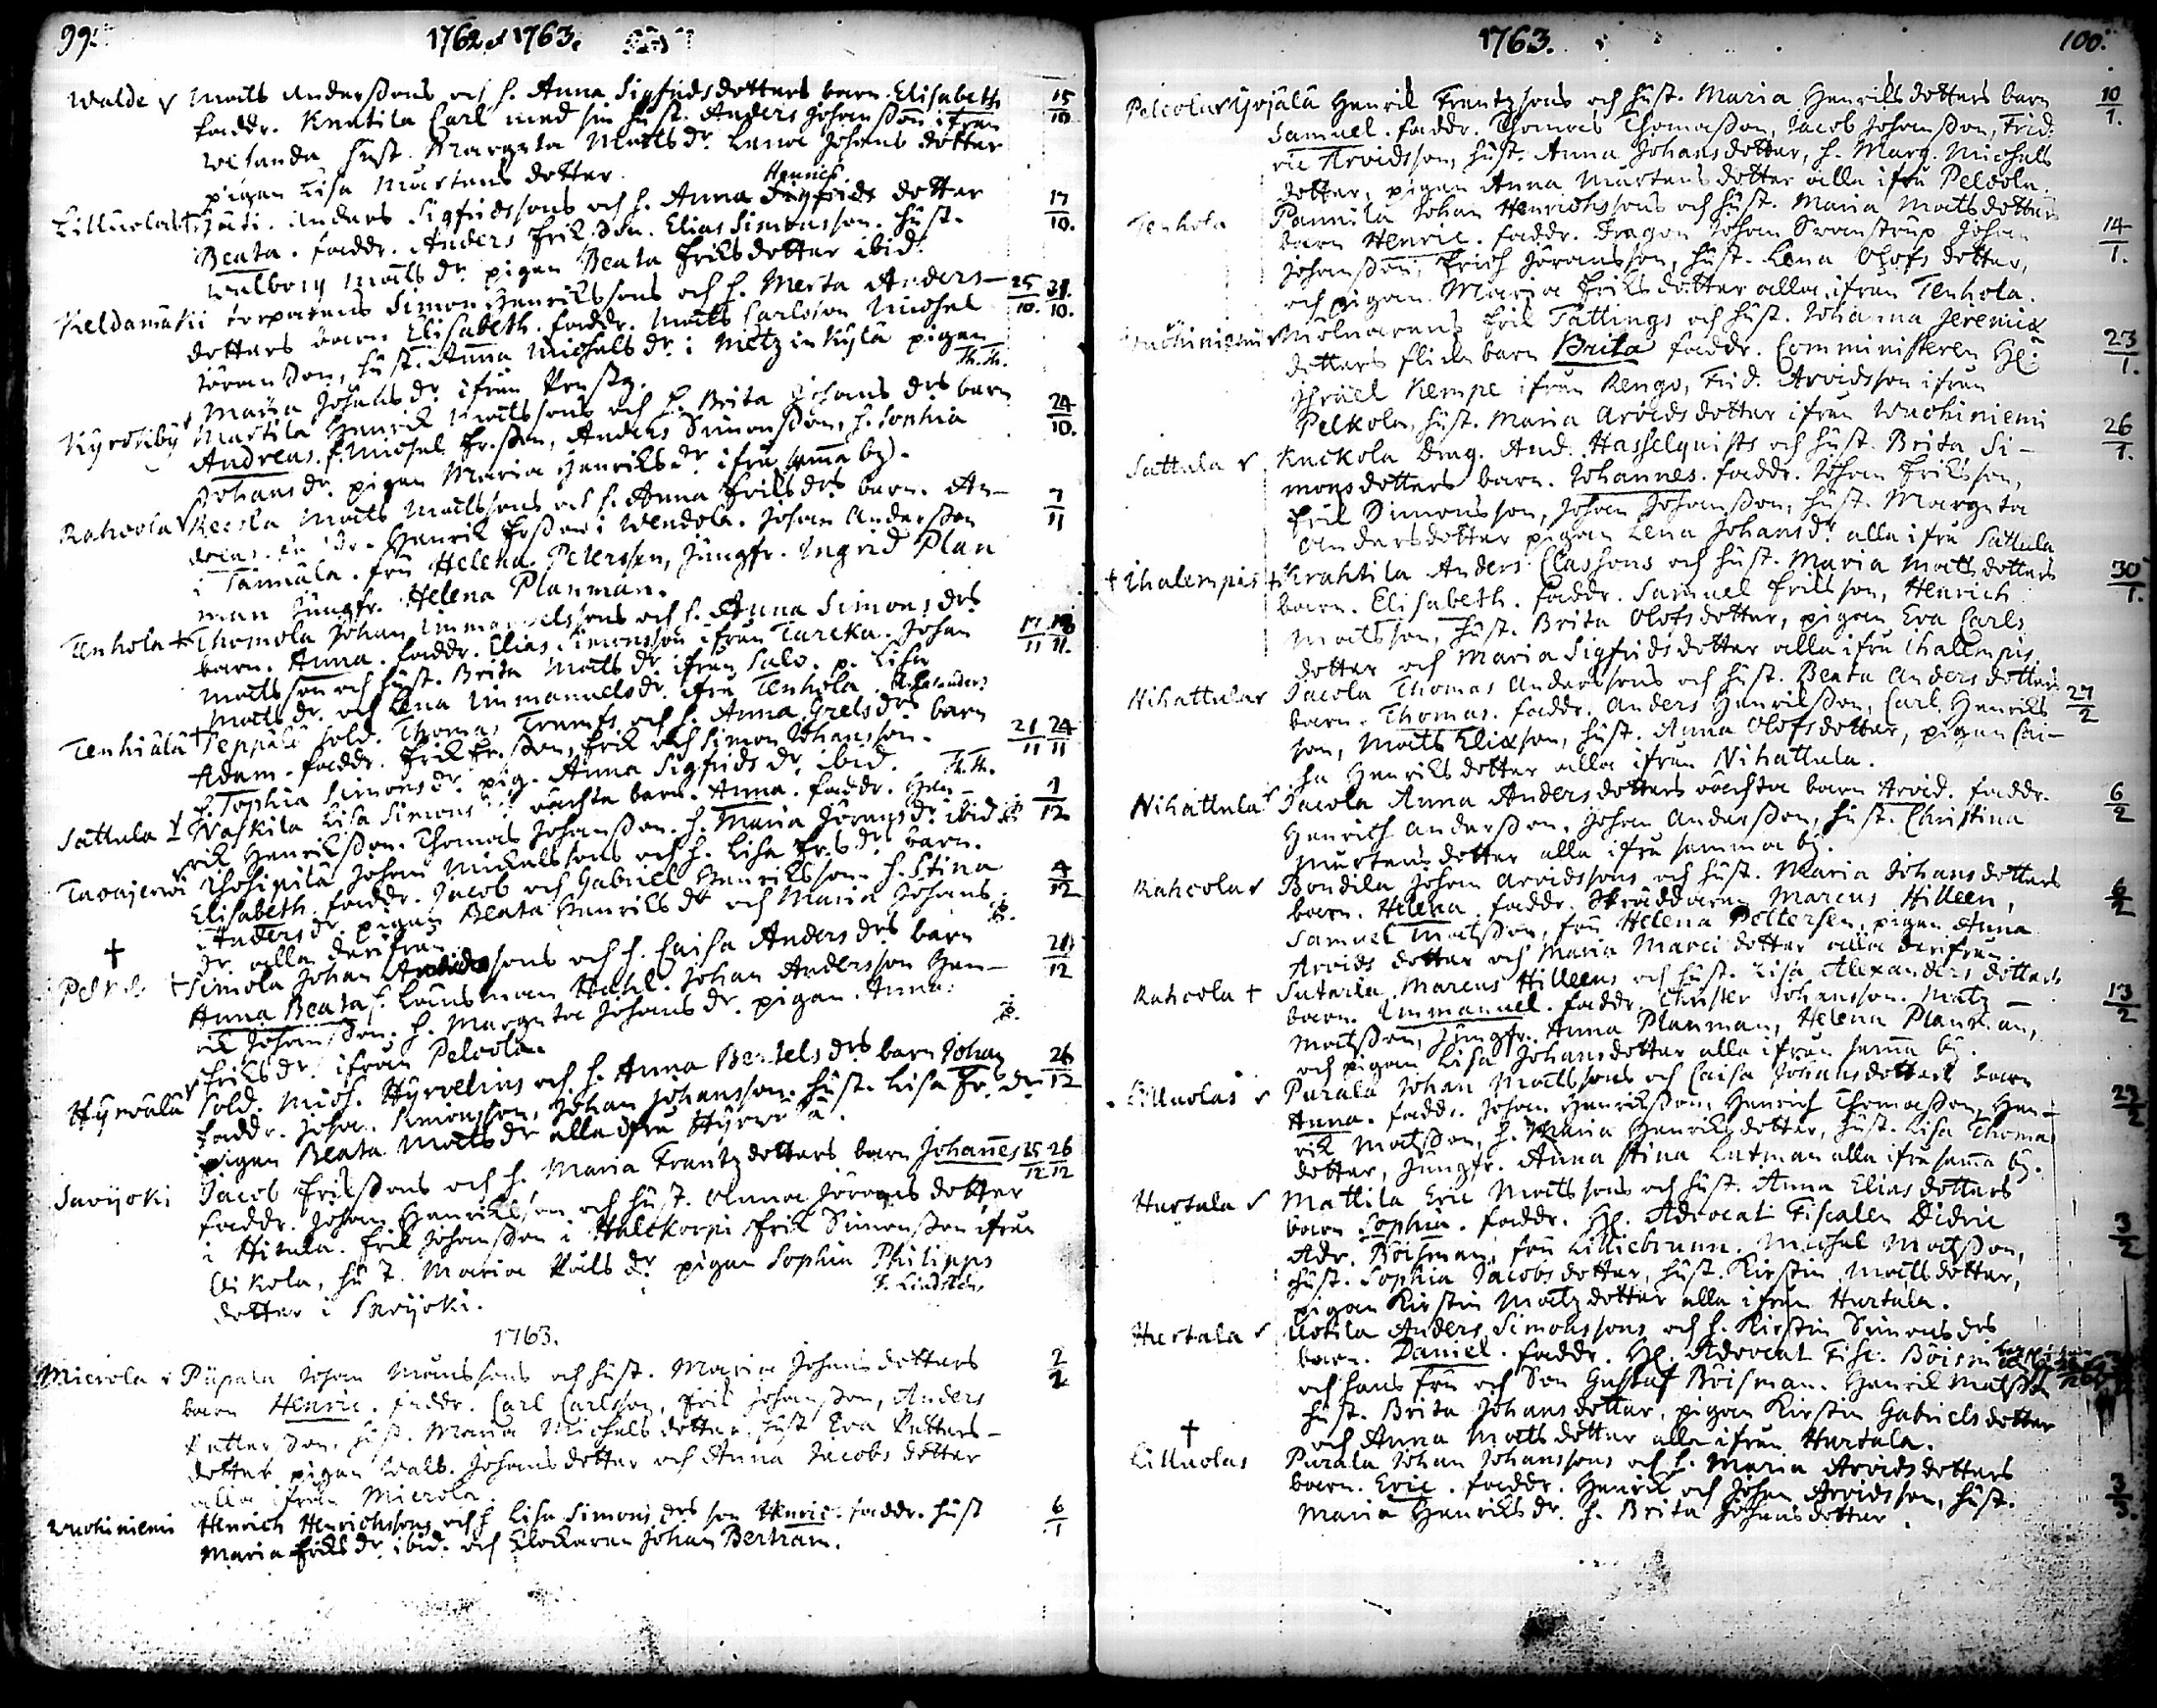 99.
1762 et 1763.
Walde Matts Anderssons och h. Anna Sigfridsdotters barn Elisabeth 15/10
faddr. Knutila Carl med sin hust. Anders Johansson ifrån
hust. Margeta Mattsdr. Lena Johans dotter
pigan Lisa Mårtens dotter.
Henrics
Lilluolais Anders Sigfridssons och h. Anna Sigfrids dotter 17/10.
Beata. faddr. Anders Erikson. Elias Simonsson. hust.
Walborg Mattsdr. pigan Beata Eriksdotter ibid.
Keldamäki torparens Simon Henrikssons och h. Merta Anders- 25/10. 31/10.
dotters barn Elisabeth. faddr. Matts Carlsson Michel
Göransson, hust. Anna Michelsdr. i Metzinkylä pigan
Maria Johansdr. ifrån Th. Th.
Kyröfby Martila Henrik Mattssons och h. Brita Johans drs barn 24/10.
Andreas. f. Michel Er.sson, Anders Simonsson, h. Sophia
Johansdr. pigan Maria Henriksdr. ifrå samma by.
Rahcola Matts Mattssons och h. Anna Eriksdrs barn. An- 7/11
dreas. Henrik Ersson i Wendola. Johan Andersson
i Tannila. fru Helena Peterssen, Jungfr. Ingrid Plan
man Jungfr. Helena Planman.
Tenhola Thomola Johan Immanuelssons och h. Anna Simons drs 17/11 18/11.
barn. Anna. faddr. Elias Simonsson ifrån Tareka. Johan
Mattsson och hust. Brita Mattsdr. ifrån Salo. p. Lisa
Mattsdr. och Lena Immanuelsdr. ifrå Tenhola.
Tenhiälä Seppälä sold. Thomas Trumfs och h. Anna Grelsdrs barn 21/11 24/11
Adam. faddr. Erik Er.sson, Erik och Simon Johansson.
h. Sophia Simonsdr. pig. Anna Sigfridsdr. ibid. Th. Th.
Sattula Waskila Lisa Simons oächta barn. Anna. faddr. Hen- 1/12
rik Henriksson. Thomas Johansson. h. Maria Göransdr. ibid.
Tavajerwi Johan Mickelssons och h. Lisa Ers drs barn. 4/12
Elisabeth. faddr. Jacob och Gabriel Henriksson. h. Stina
Andersdr. pigan Beata Henriksdr och Maria Johans
dr alla derifrån.
Simola Johan Arvidssons och h. Caisa Anders drs barn 21/12
Anna Beata f. Länsman Hahl. Johan Andersson Hen-
rik Johansson. h. Margeta Johansdr. pigan. Anna
Eriksdr. ifrån Pelcola.
Hyrvälä Sold. Mich. Hyrvelins och h. Anna Bertels drs barn Johan 26/12
faddr. Johan Simonsson, Johan Johansson. hust. Lisa Fr. dr
pigan Beata Mattsdr alla ifrå
Savijoki Jacob Erikssons och h. Maria Frantzdotters barn Johannes 25/12 26/12
faddr. Johan Henriksson och hust. Anna Görans dotter
i Hitula. Erik Johansson i Halckorpi Erik Simonsson ifrån
Uikola, Maria Påls dr. pigan Sophia Philipps
dotter i Savijoki. F. Lindsten.
1763.
Mierola Johan Månssons och hust. Maria Johans dotters
barn Henric. faddr. Carl Carlsson, Erik Johansson, Anders
Pettersson, hust. Maria Michelsdotter, hust Eva Petters-
dotter pigan Walb. Johansdotter och Anna Jacobs dotter
alla ifrån Mierola.
Wuohiniemi Henrich Henrichssons och h Lisa Simons drs son Henric. faddr. hust 6/1
Maria Eriksdr. ibid. och Klockaren Johan Bertram.
1763.
100.
Pelcola Yrjälä Henrik Frantzsons och hust. Maria Henriksdotters barn 10/1.
Samuel. faddr. Thomas Thomasson, Jacob Johansson, Frid-
ric Arvidsson, hust. Anna Johansdotter, h. Marg. Michels
dotter, pigan Anna Mårtens dotter alla ifrå Pelcola.
Tenhola Pannila Johan Henrichssons och hust. Maria Mattsdotters
barn Henric. faddr. Dragon Johan Svanstrup Johan 14/1.
Johansson, Erich Göransson, hust. Lena Olofs dotter,
och pigan Maria Eriksdotter alla ifrån Tenhola.
Wuohiniemi Mölnarens Erik Tättings och hust. Johanna Jeremiæ
dotters flicke barn Brita faddr. Comministeren Hr. 23/1.
Israel Kempe ifrån Rengo, Frid. Arvidsson ifrån
Pelkola, hust. Maria Arvidsdotter ifrån Wuohiniemi
Sattula Knckola Drag. And. Hasselquists och hust. Brita Si- 26/1.
monsdotters barn. Johannes. faddr. Johan Eriksson,
Erik Simonsson, Johan Johansson, hust. Margeta
Andersdotter pigan Lena Johansdr. alla ifrå Sattula
Ihalempis Krahtila Anders Classons och hust. Maria Mattsdotters 30/1.
barn. Elisabeth. faddr. Samuel Eriksson, Henrich
Mattsson, hust. Brita Olofsdotter, pigan Eva Carls
dotter och Maria Sigfridsdotter alla ifrå Ihalempis
Nihattula Jacola Thomas Anderssons och hust. Beata Anders dotters 27/2
barn. Thomas. faddr. Anders Henriksson, Carl Henriks
son, Matts Eliæson, hust. Anna Olofsdotter, pigan Cai-
sa Henriksdotter alla ifrån Nihattula.
Nihattula Jacola Anna Andersdotters oächta barn Arvid. faddr. 6/2
Henrich Andersson, Johan Andersson, hust. Christina
Mårtensdotter alla ifrå samma by.
Rahcola Bondila Johan Arvidssons och hust. Maria Johansdotters 6/2
barn. Helena. faddr. Skräddaren Marcus Hilleen,
Samuel Matsson, fru Helena Pettersen, pigan Anna
Arvids dotter och Maria Marci dotter alla derifrån.
Rahcola Sutarila Marcus Hilleens och hust. Lisa Alexanders dotters 13/2
barn. Immanuel. faddr. Christer Johansson. Matz
Matsson, Jungfr. Anna Planman, Helena Planman,
och pigan Lisa Johansdotter alla ifrån samma by.
Lilluolais Purala Johan Mattssons och Caisa Johansdotters barn
Anna. faddr. Johan Henriksson, Henrich Thomasson, Hen-
rik Matsson, h. Maria Henriksdotter, hust. Lisa Thomas
dotter, Jungfr. Anna Stina Lutman alla ifrå samma by.
Hurtala Mattila Eric Matssons och hust. Anna Eliasdotters
barn Sophia. faddr. Hr. Advocat Fiscalen Didric 3/2
Adr. Böisman, fru Lilliebrunn. Michel Matsson,
hust. Sophia Jacobsdotter, hust. Kirstin Mattsdotter,
pigan Kirstin Matzdotter alla ifrån Hurtala.
Hurtala Uotila Anders Simonssons och h. Kirstin Simons drs
barn. Daniel. faddr. Hr. Advocat Fisc. Böism
och hans fru och Son Gustaf Böisman. Henrik Matsson
hust. Brita Johansdotter, pigan Kirstin Gabrielsdotter
och Anna Matts dotter alla ifrån Hurtala.
Lilluolas Purala Johan Johanssons och h. Maria Arvidsdotters
barn. Eric. faddr. Henrik och Johan Arvidsson, hust. 3/3.
Maria Henriksdr. h. Brita Johansdotter.